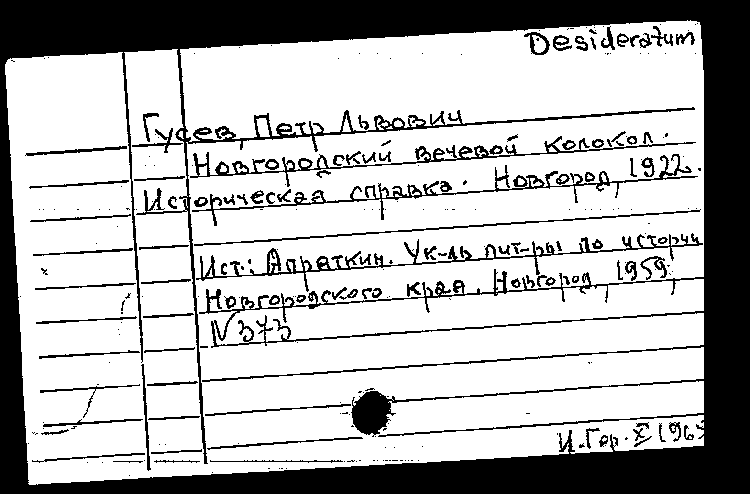 Desideratum
Гусев, Петр Львович
Новгородский вечевой колокол.
Историческая справка. Новгород, 1922.
Ист.: Апраткин. Ук-ль лит-ры по истории
Новгородского края. Новгород, 1959,
N 373
И.Гор. X 196